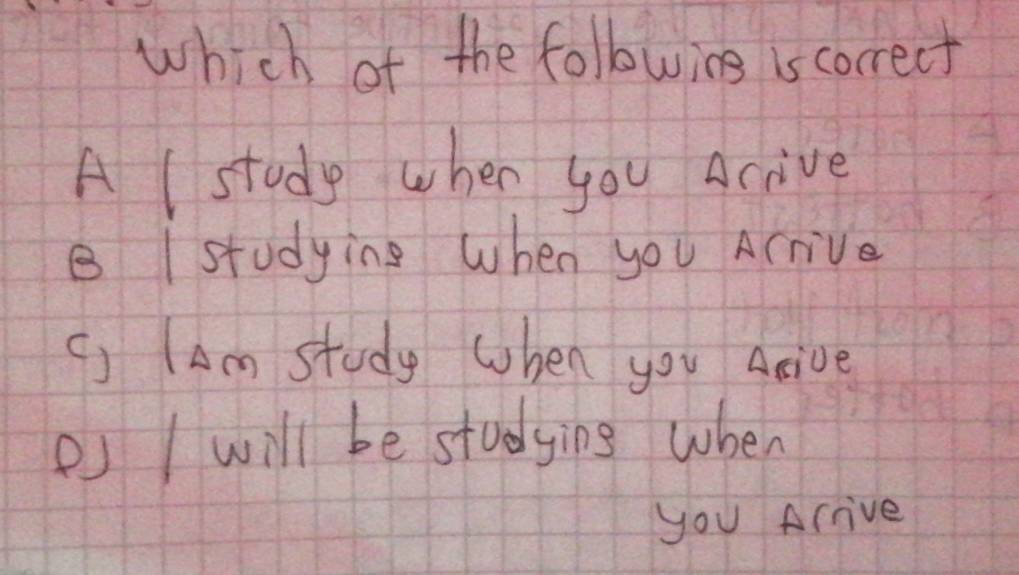 which of the following is correct
A I study when you Arrive
B I studying when you Arrive
C) I Am study when you Arrive
D) I will be studying when
you Arrive